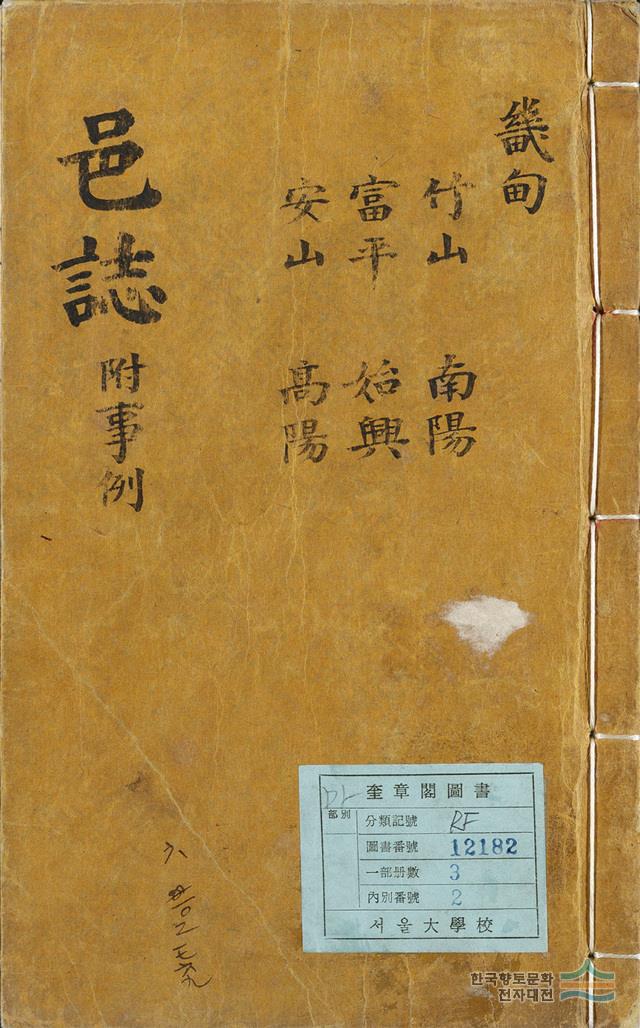 畿甸
竹山 南陽
富平 始興
安山 高陽
邑誌 附事例
奎章閣圖書
部別
分類記號 RF
圖書番號 12182
一部册數 3
內別番號 2
서울大學校
한국향토문화
전자대전